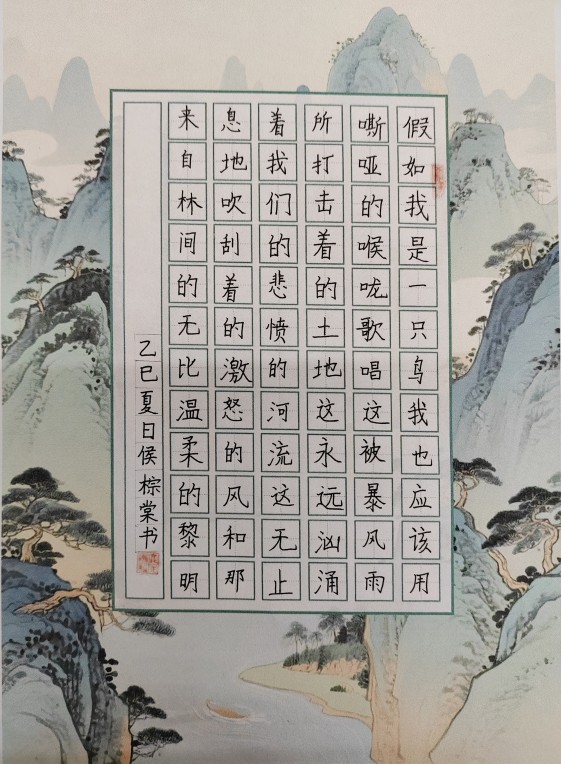 假如我是一只鸟我也应该用
嘶哑的喉咙歌唱这被暴风雨
所打击着的土地这永远汹涌
着我们的悲愤的河流这无止
息地吹刮着的激怒的风和那
来自林间的无比温柔的黎明
乙巳夏日侯棕棠书